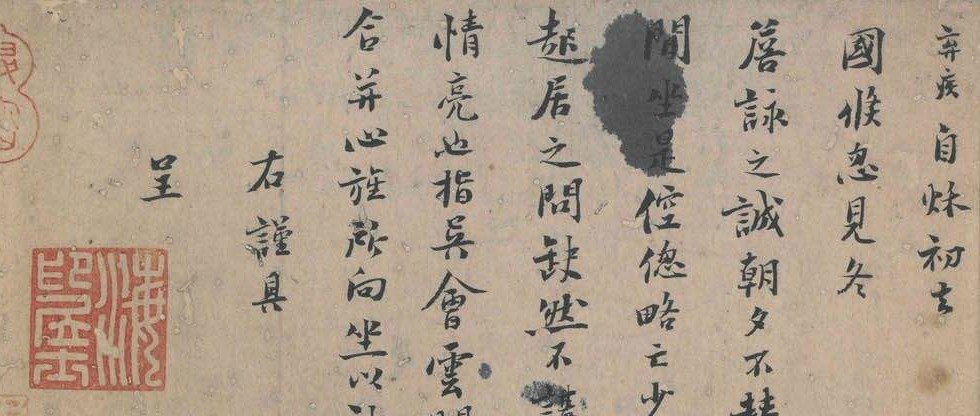 棄疾自秋初去
國倐忽見冬
詹詠之誠朝夕不替
間坐是倥偬略亡少
起居之問缺然不講
情亮也指吳會雲間
合并心旌所向坐以
右謹具
呈